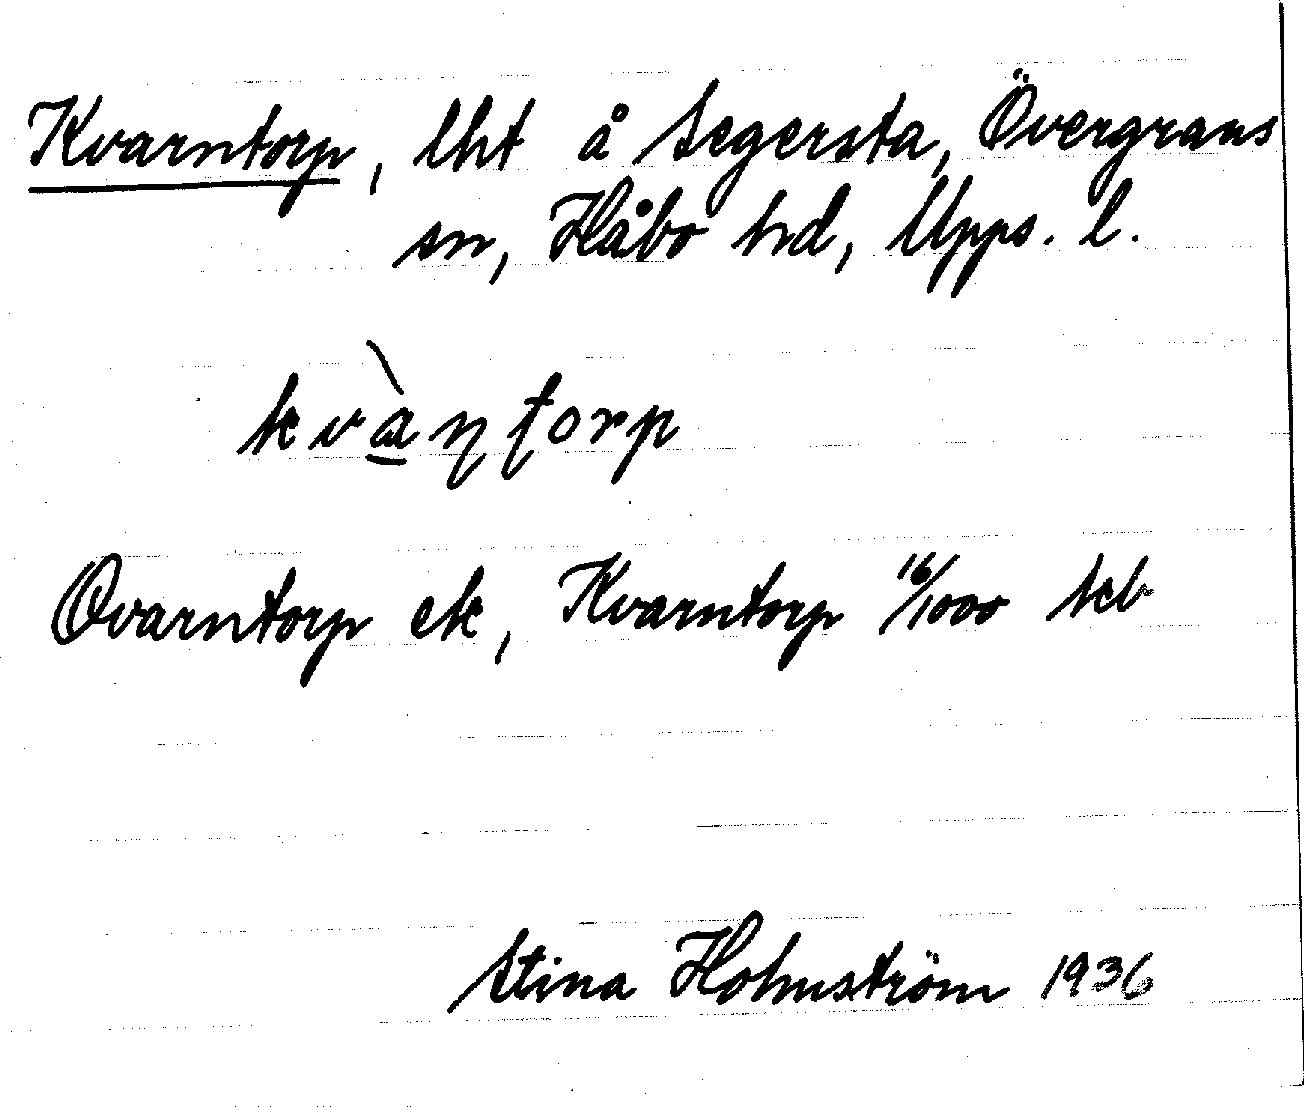 Kvarntorp, lht å Segersta, Övergrans
sn, Håbo hd, Upps. l.
kvà̱ɳʈorp
Qvarntorp ek, Kvarntorp 16/1000 kb
Stina Holmström 1936